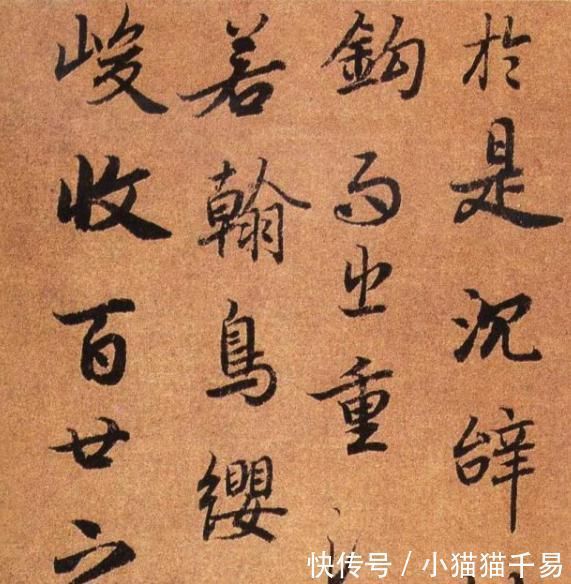 於是沈辭
鈎而出重
若翰鳥纓
峻收百世
快传号 / 小猫猫千易